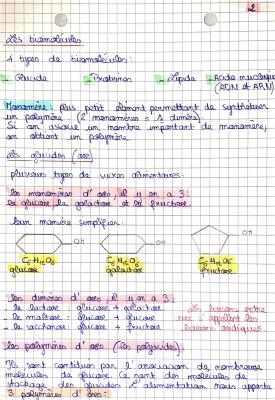 2
Les biomolécules
4 types de biomolécules:
- Glucide - Protéines - Lipide - Acide nucléique
(ADN et ARN)
Monomère: plus petit élément permettant de synthétiser
un polymère (2 monomères = 1 dimère).
Si on associe un nombre important de monomère,
on obtient un polymère.
Les glucides (ose)
plusieurs types de sucres alimentaires:
les monomères d'oses, il y en a 3:
le glucose la galactose et le fructose.
leur manière simplifiée:
OH OH OH
C6H12O6 C6H12O6 C6H12O6
glucose galactose fructose
les dimères d'oses, il y en a 3:
- le lactose: glucose + galactose
- le maltose: glucose + glucose
- le saccharose: glucose + fructose
Les liaisons entre
ose s'appellent les
liaisons osidiques
les polymères d'oses (les polyosides):
Ils sont constitués par l'association de nombreuses
molécules de glucose. Ce sont des molécules de
stockage des glucides. L'alimentation nous apporte
3 polymères d'oses: